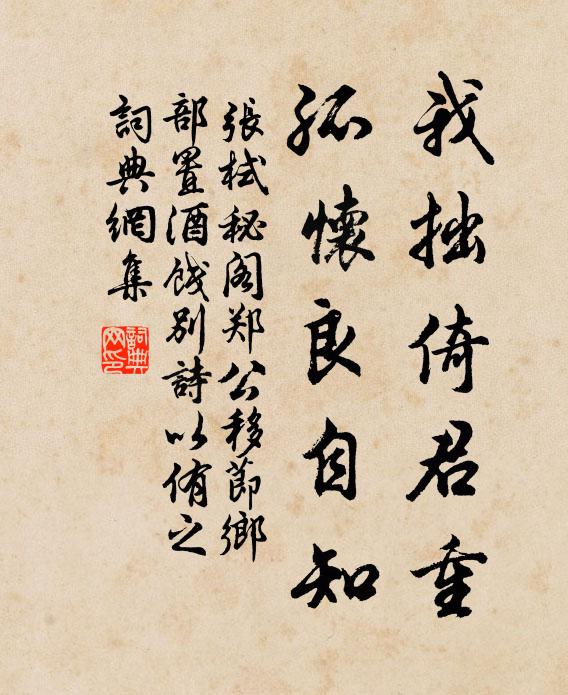 我拙倚君重
孤懷良自知
張栻秘阁郑公移莭鄉
部置酒饯别詩以侑之
詞典網集
詞典网印